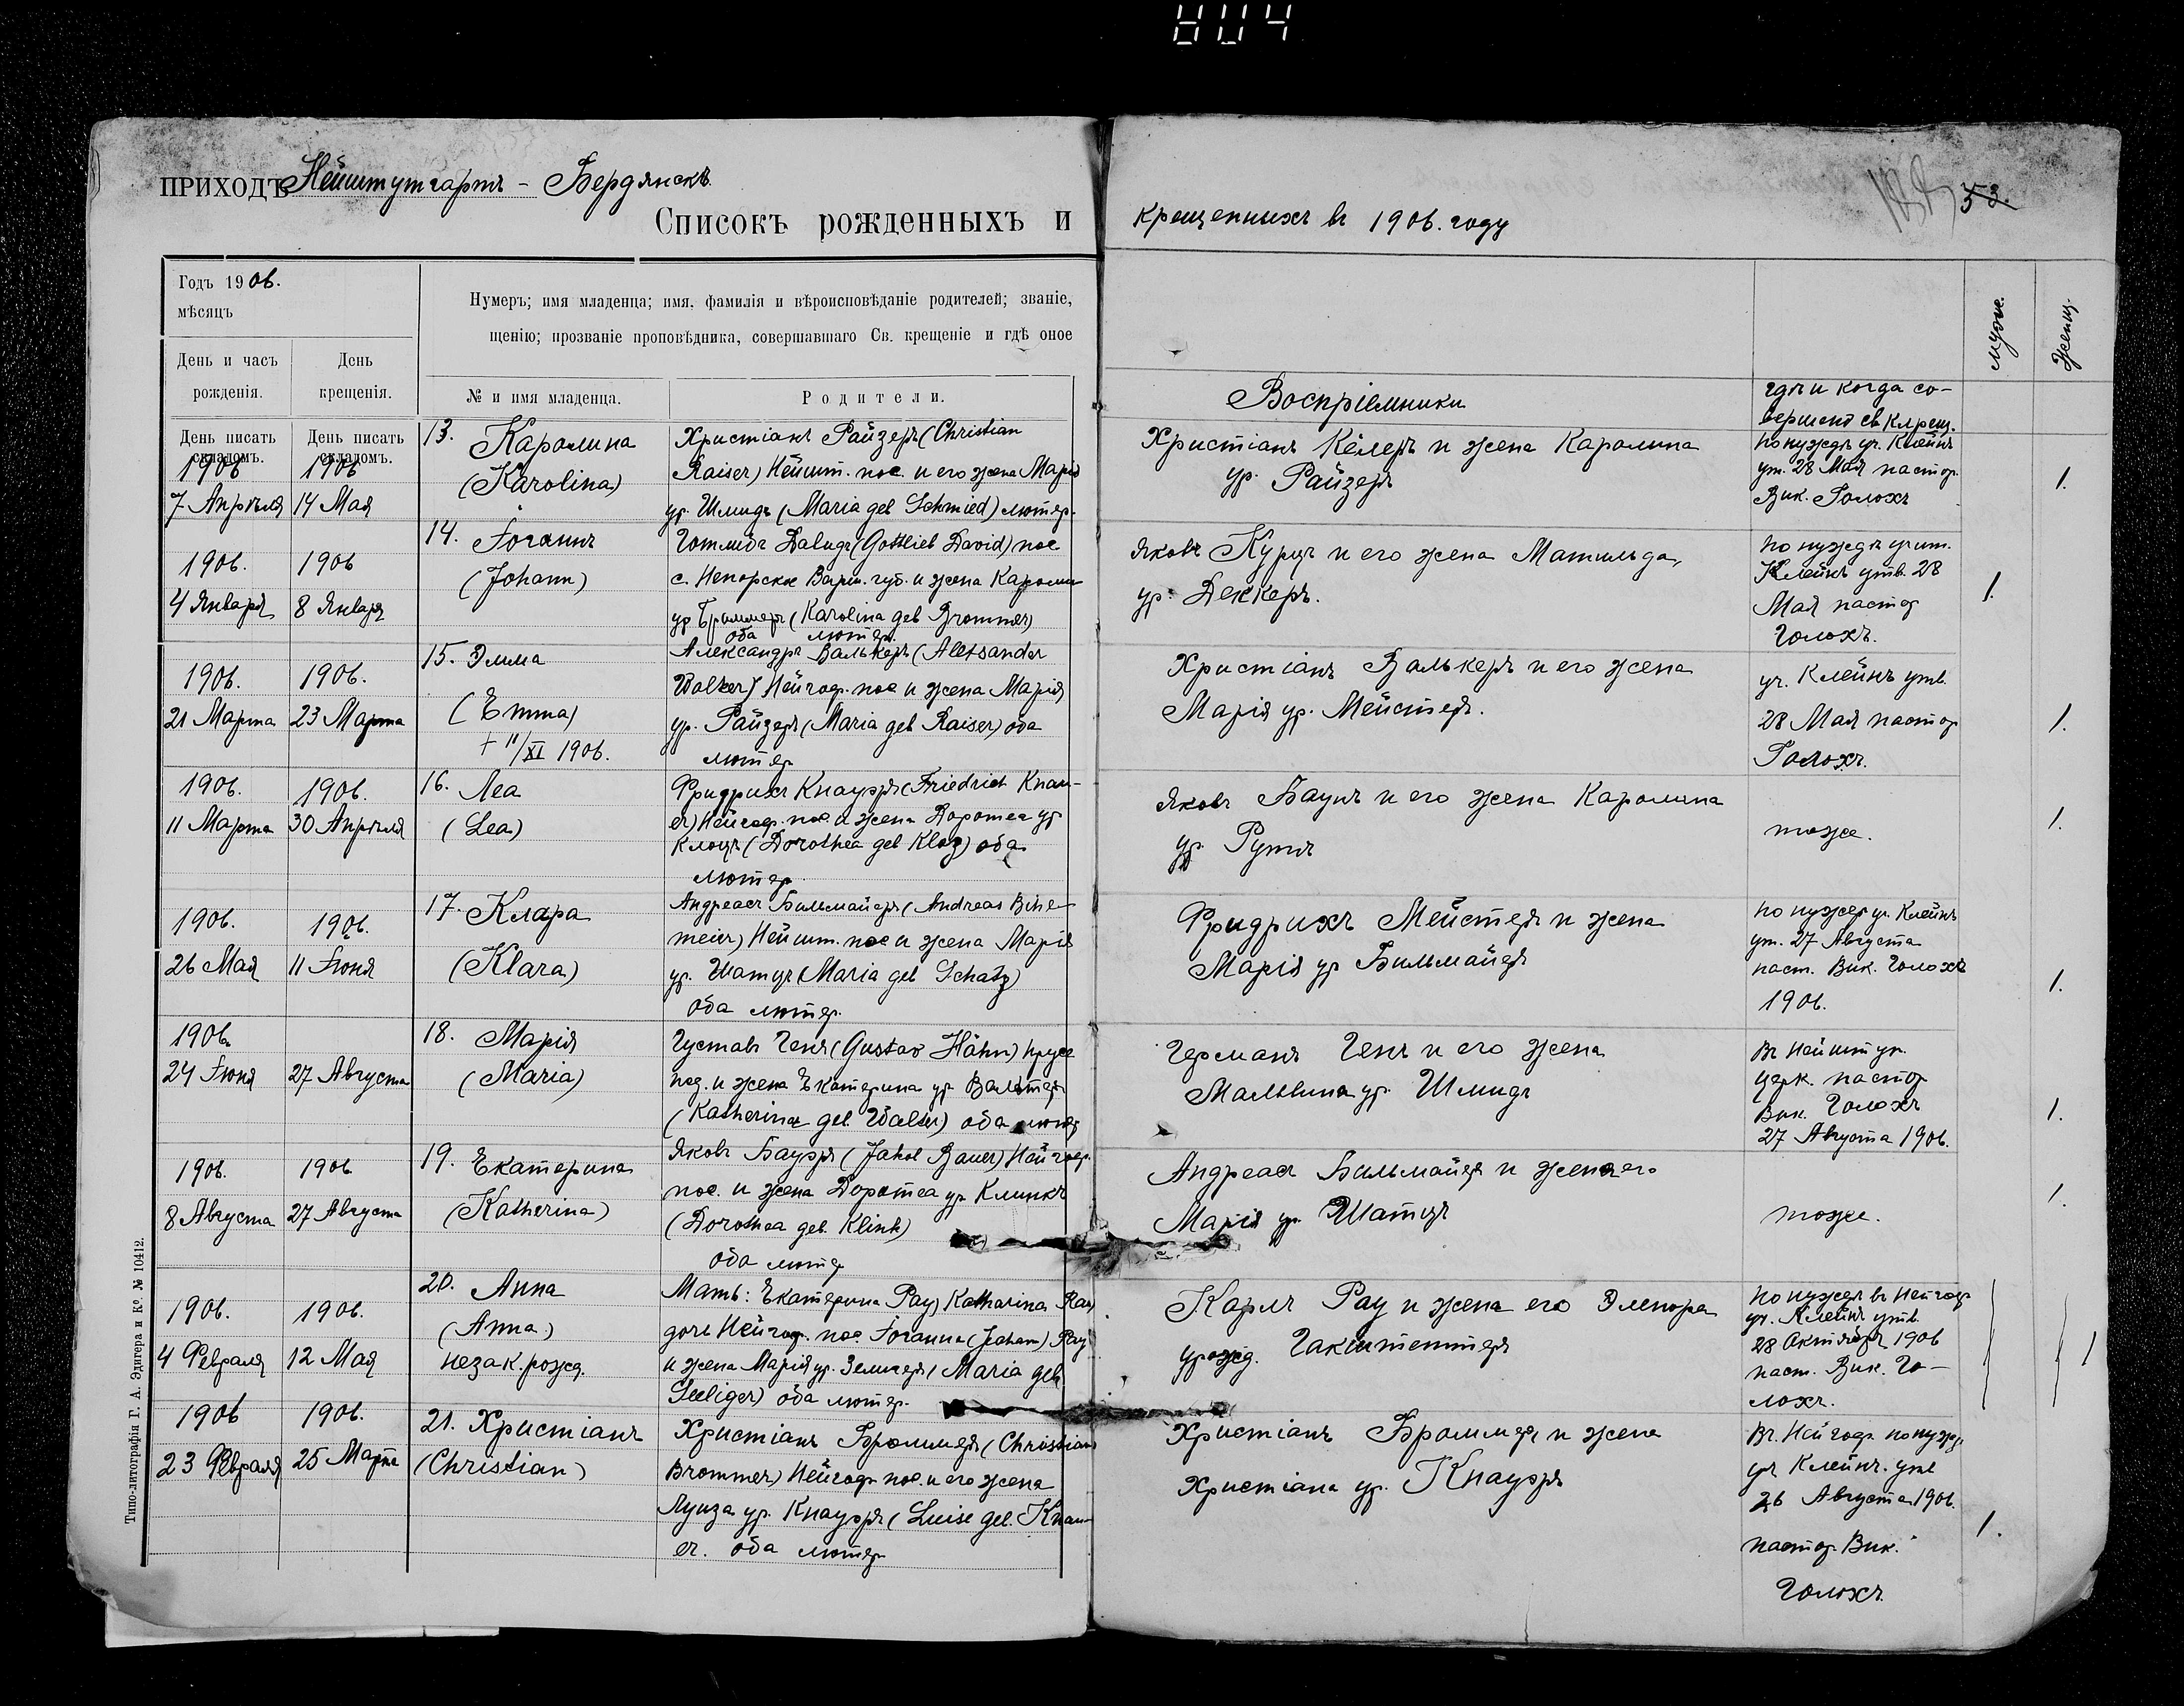 804
ПРИХОДЪ Нейштутгартъ - Бердянскъ.
Списокъ рожденныхъ и
крещенныхъ въ 1906. году
53.
Годъ 1906.
мѣсяцъ
Нумеръ; имя младенца; имя, фамилія и вѣроисповѣданіе родителей; званіе,
щенію; прозваніе проповѣдника, совершавшаго Св. крещеніе и гдѣ оное
День и часъ
рожденія.
День
крещенія.
№ и имя младенца.
Родители.
Воспріемники
гдѣ и когда со-
вершено св крещ.
мужс.
Женщ.
День писать
складомъ.
День писать
складомъ.
1906
7 Апрѣля
1906
14 Мая
13. Каролина
(Karolina)
Христіанъ Райзеръ (Christian
Raiser) Нейшт. пос. и его жена Марія
ур. Шмидъ (Maria geb Schmied) лютер.
Христіанъ Келеръ и жена Каролина
ур. Райзеръ
по нуждѣ уч. Клейнъ
ут. 28 Мая пастор.
Вик. Голохъ
1.
1906.
4 Января
1906
8 Января
14. Іоганнъ
(Johann)
Готлибъ Давидъ (Gottlieb David) пос
с. Непорскъ Варш. губ. и жена Каролин
ур Броммеръ (Karolina geb Brommer)
оба лютер.
Яковъ Курцъ и его жена Матильда,
ур. Деккеръ.
по нуждѣ учит.
Клейнъ утв. 28
Мая пастор
Голохъ.
1.
1906.
21 Марта
1906.
23 Марта
15. Эмма
(Emma)
+ 11/XI 1906.
Александръ Валькеръ (Aleksander
Walker) Нейгоф. пос и жена Марія
ур. Райзеръ (Maria geb Raiser) оба
лютер
Христіанъ Валькеръ и его жена
Марія ур. Мейстеръ.
уч. Клейнъ утв.
28 Мая пастор
Голохъ.
1.
1906.
11 Марта
1906.
30 Апрѣля
16. Леа
(Lea)
Фридрихъ Кнауэръ (Friedrich Knau-
er) Нейгоф. пос. и жена Доротеа ур
Клоцъ (Dorothea geb Kloz) оба
лютер.
Яковъ Баунъ и его жена Каролина
ур. Рутъ
тоже.
1.
1906.
26 Мая
1906.
11 Іюня
17. Клара
(Klara)
Андреасъ Бильмайеръ (Andreas Bihe-
meier) Нейшт. пос и жена Марія
ур. Шатцъ (Maria geb Schatz)
оба лютер.
Фридрихъ Мейстеръ и жена
Марія ур Бильмайеръ
по нужде уч. Клейнъ
ут. 27 Августа
паст. Вик. Голохъ
1906.
1.
1906.
24 Іюня
27 Августа
18. Марія
(Maria)
Густавъ Генъ (Gustav Hähn) прусс
под. и жена Екатерина ур Вальтеръ
(Katherina geb. Walter) оба лютер
Германъ Генъ и его жена
Мальвина ур. Шмидъ
Въ Нейштут.
церк. пастор
Вик. Голохъ
27 Августа 1906.
1.
1906.
8 Августа
1906
27 Августа
19. Екатерина
(Katherina)
Яковъ Бауэръ (Jakob Bauer) Нейгоф.
пос. и жена Доротеа ур Клинкъ
(Dorothea geb. Klink)
оба лютер
Андреасъ Бильмайеръ и жена его
Марія ур. Шатцъ
тоже.
1.
1906.
4 Февраля
1906.
12 Мая
20. Анна
(Anna)
незак. рожд.
Мать: Екатерина Рау, Katharina Rau
дочь Нейгоф. пос. Іоганна (Johann) Рау
и жена Марія ур. Зелигеръ (Maria geb
Seeliger) оба лютер.
Карлъ Рау и жена его Элеонора
урожд. Гакштеттеръ
по нуждѣ въ Нейгоф
уч. Клейнъ утв.
28 Октября 1906
паст. Вик. Го-
лохъ.
1
1906
23 Февраля
1906.
25 Марта
21. Христіанъ
(Christian)
Христіанъ Броммеръ (Christian
Brommer) Нейгоф. пос. и его жена
Луиза ур. Кнауэръ (Luise geb. Knau-
er. оба лютер
Христіанъ Броммеръ и жена
Христіана ур. Кнауэръ
Въ Нейгоф. по нужд.
уч Клейнъ. утв
26 Августа 1906.
пастор. Вик.
Голохъ.
1.
Типо-литографія Г. А. Эдигера и Кº. № 10412.